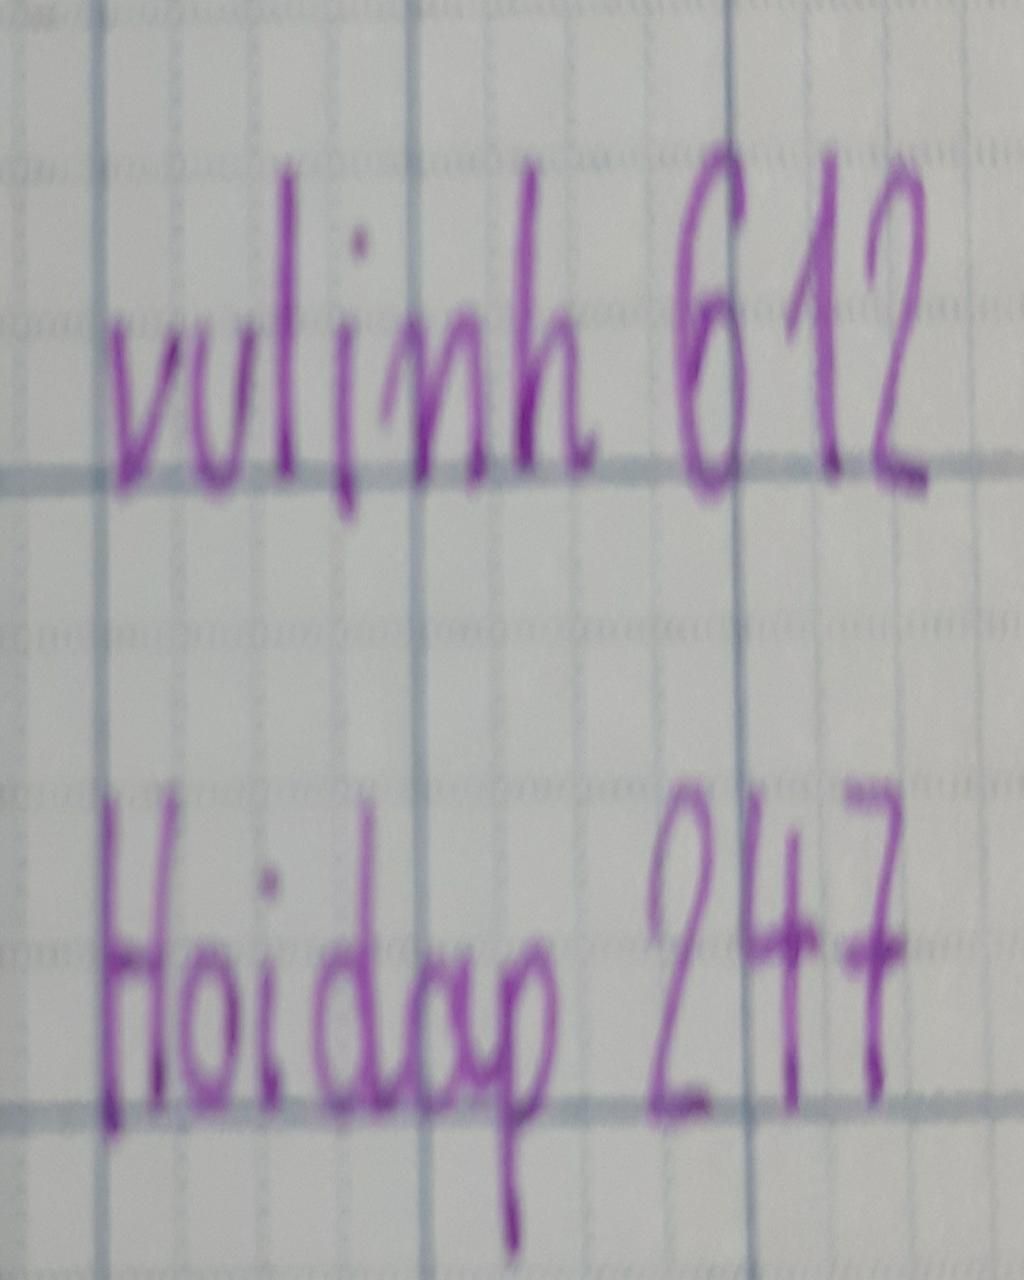 vulinh 612
Hoidap 247